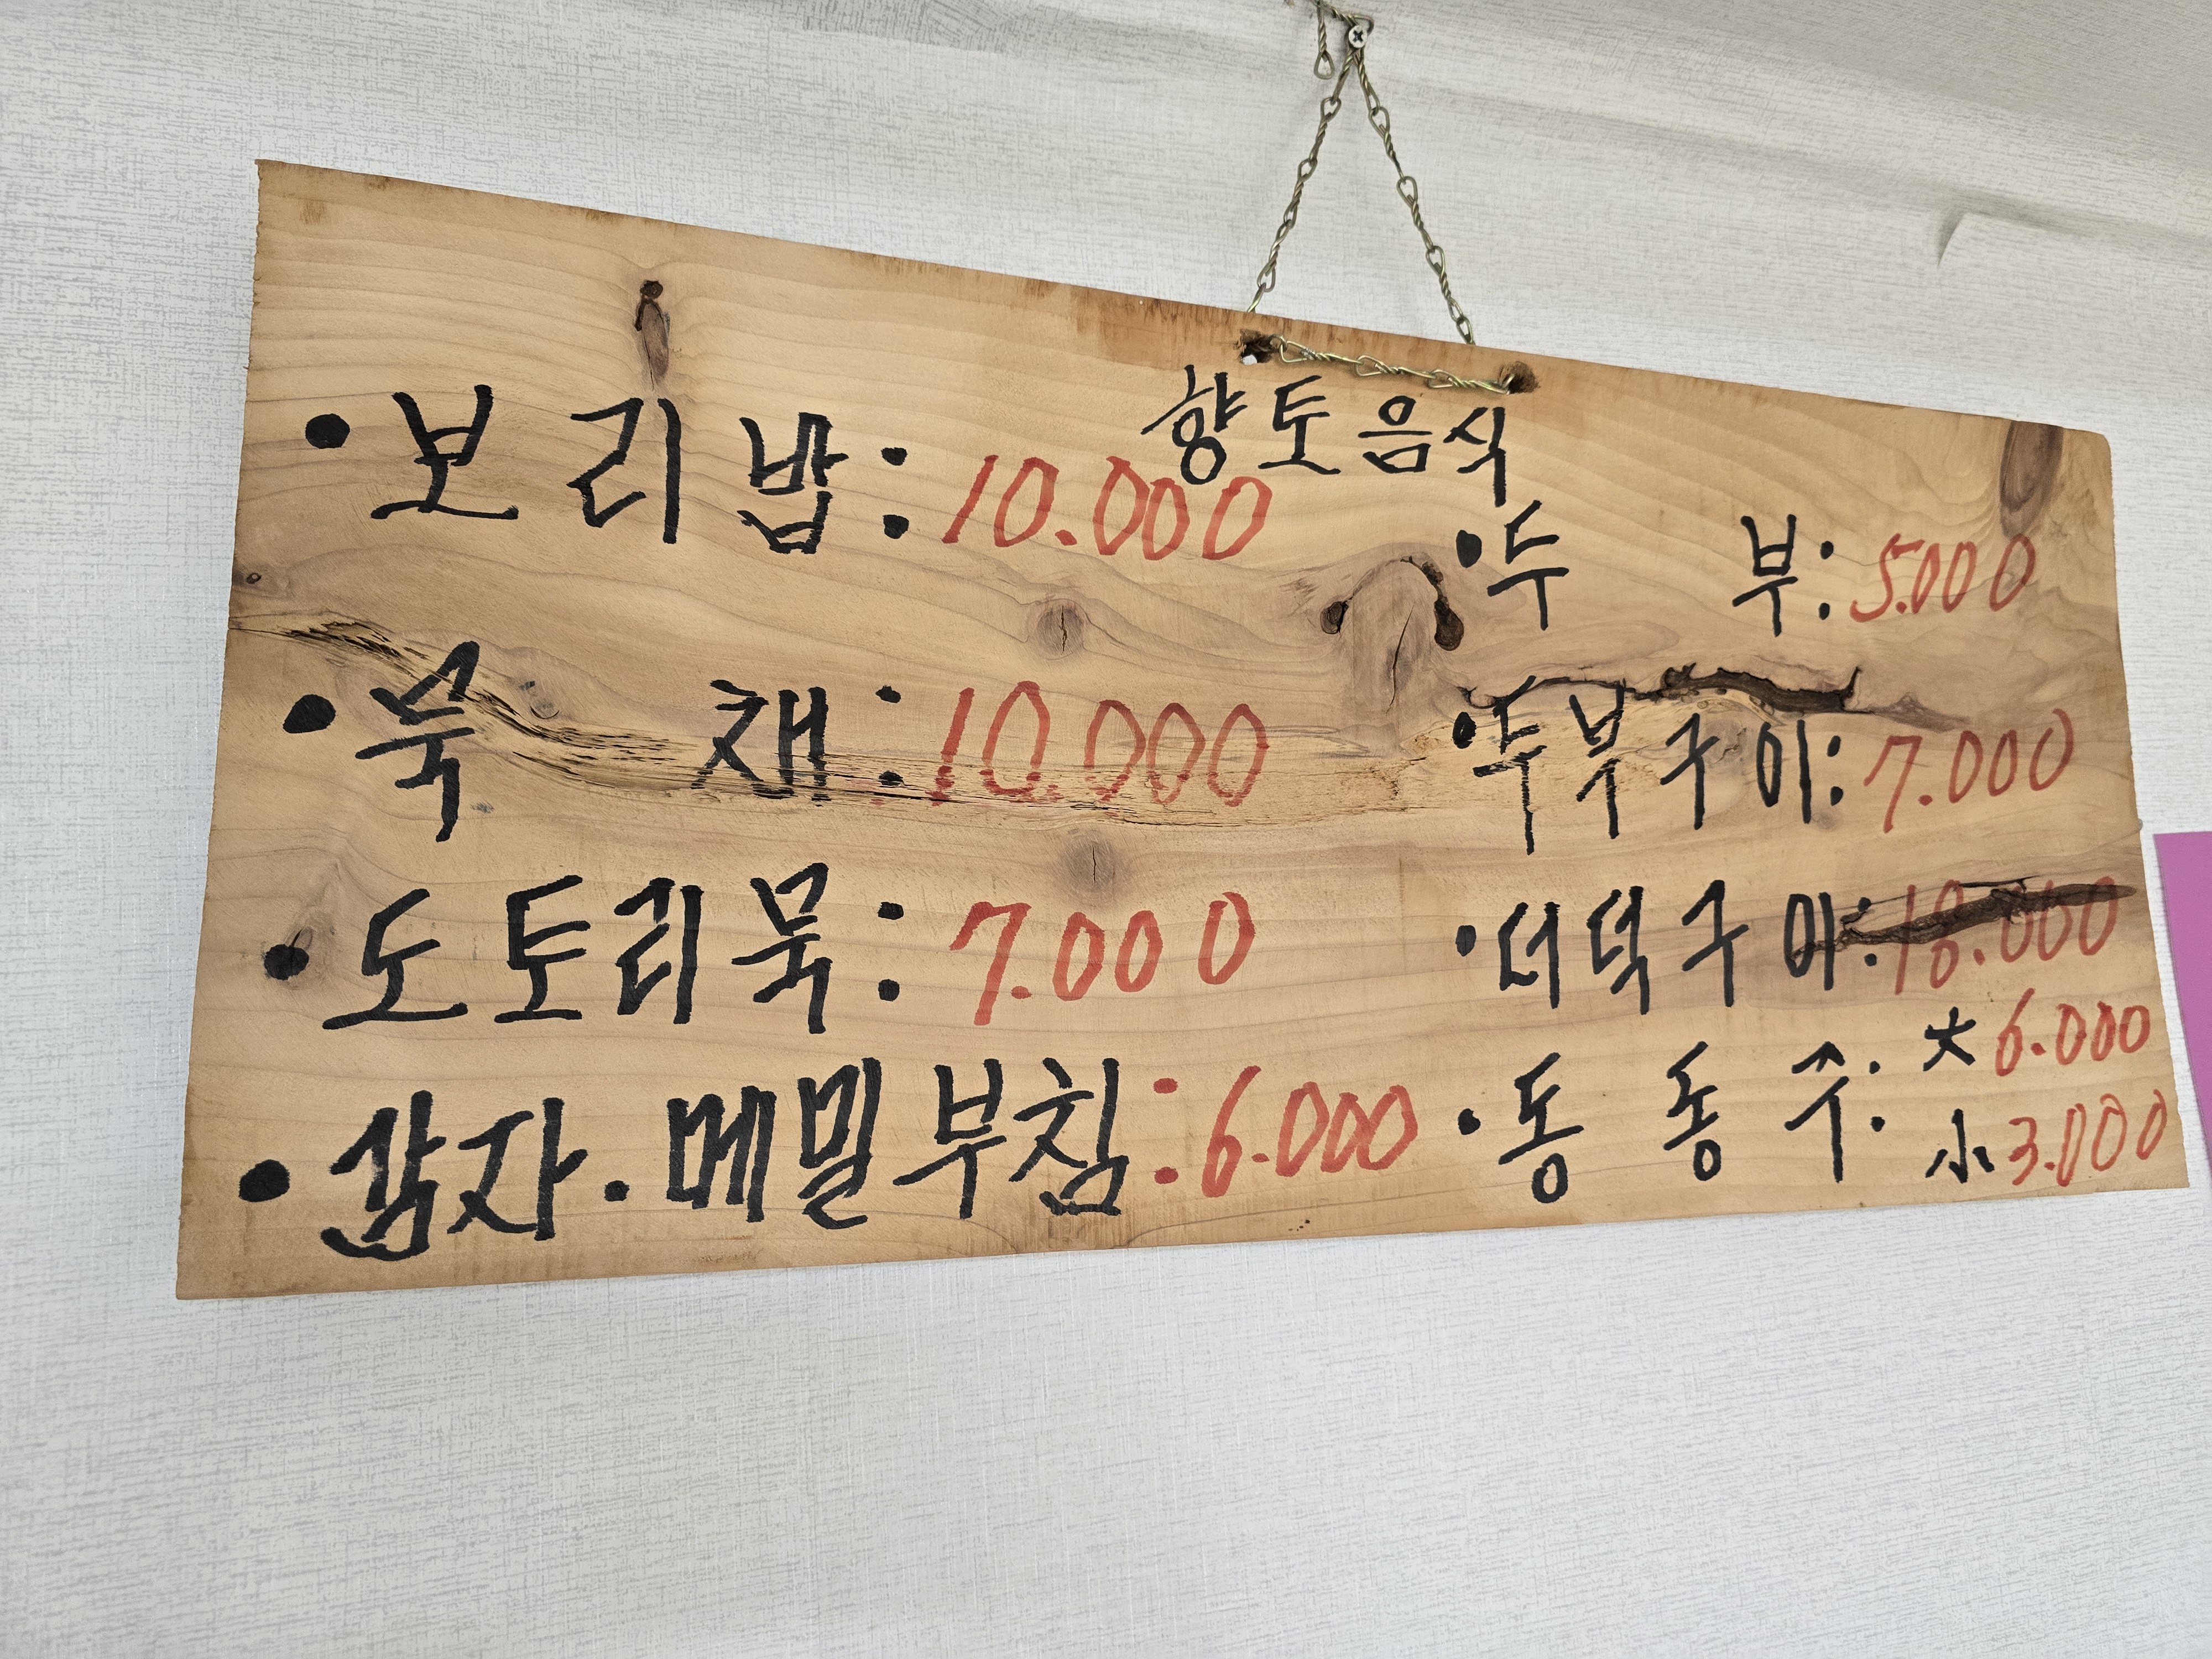 향토음식
• 보리밥 : 10.000
• 묵 채 : 10.000
• 도토리묵 : 7.000
• 감자 . 메밀부침 : 6.000
• 두 부 : 5.000
• 두부구이 : 7.000
• 더덕구이 : 18.000
• 동 동 주 : 大 6.000
小 3.000